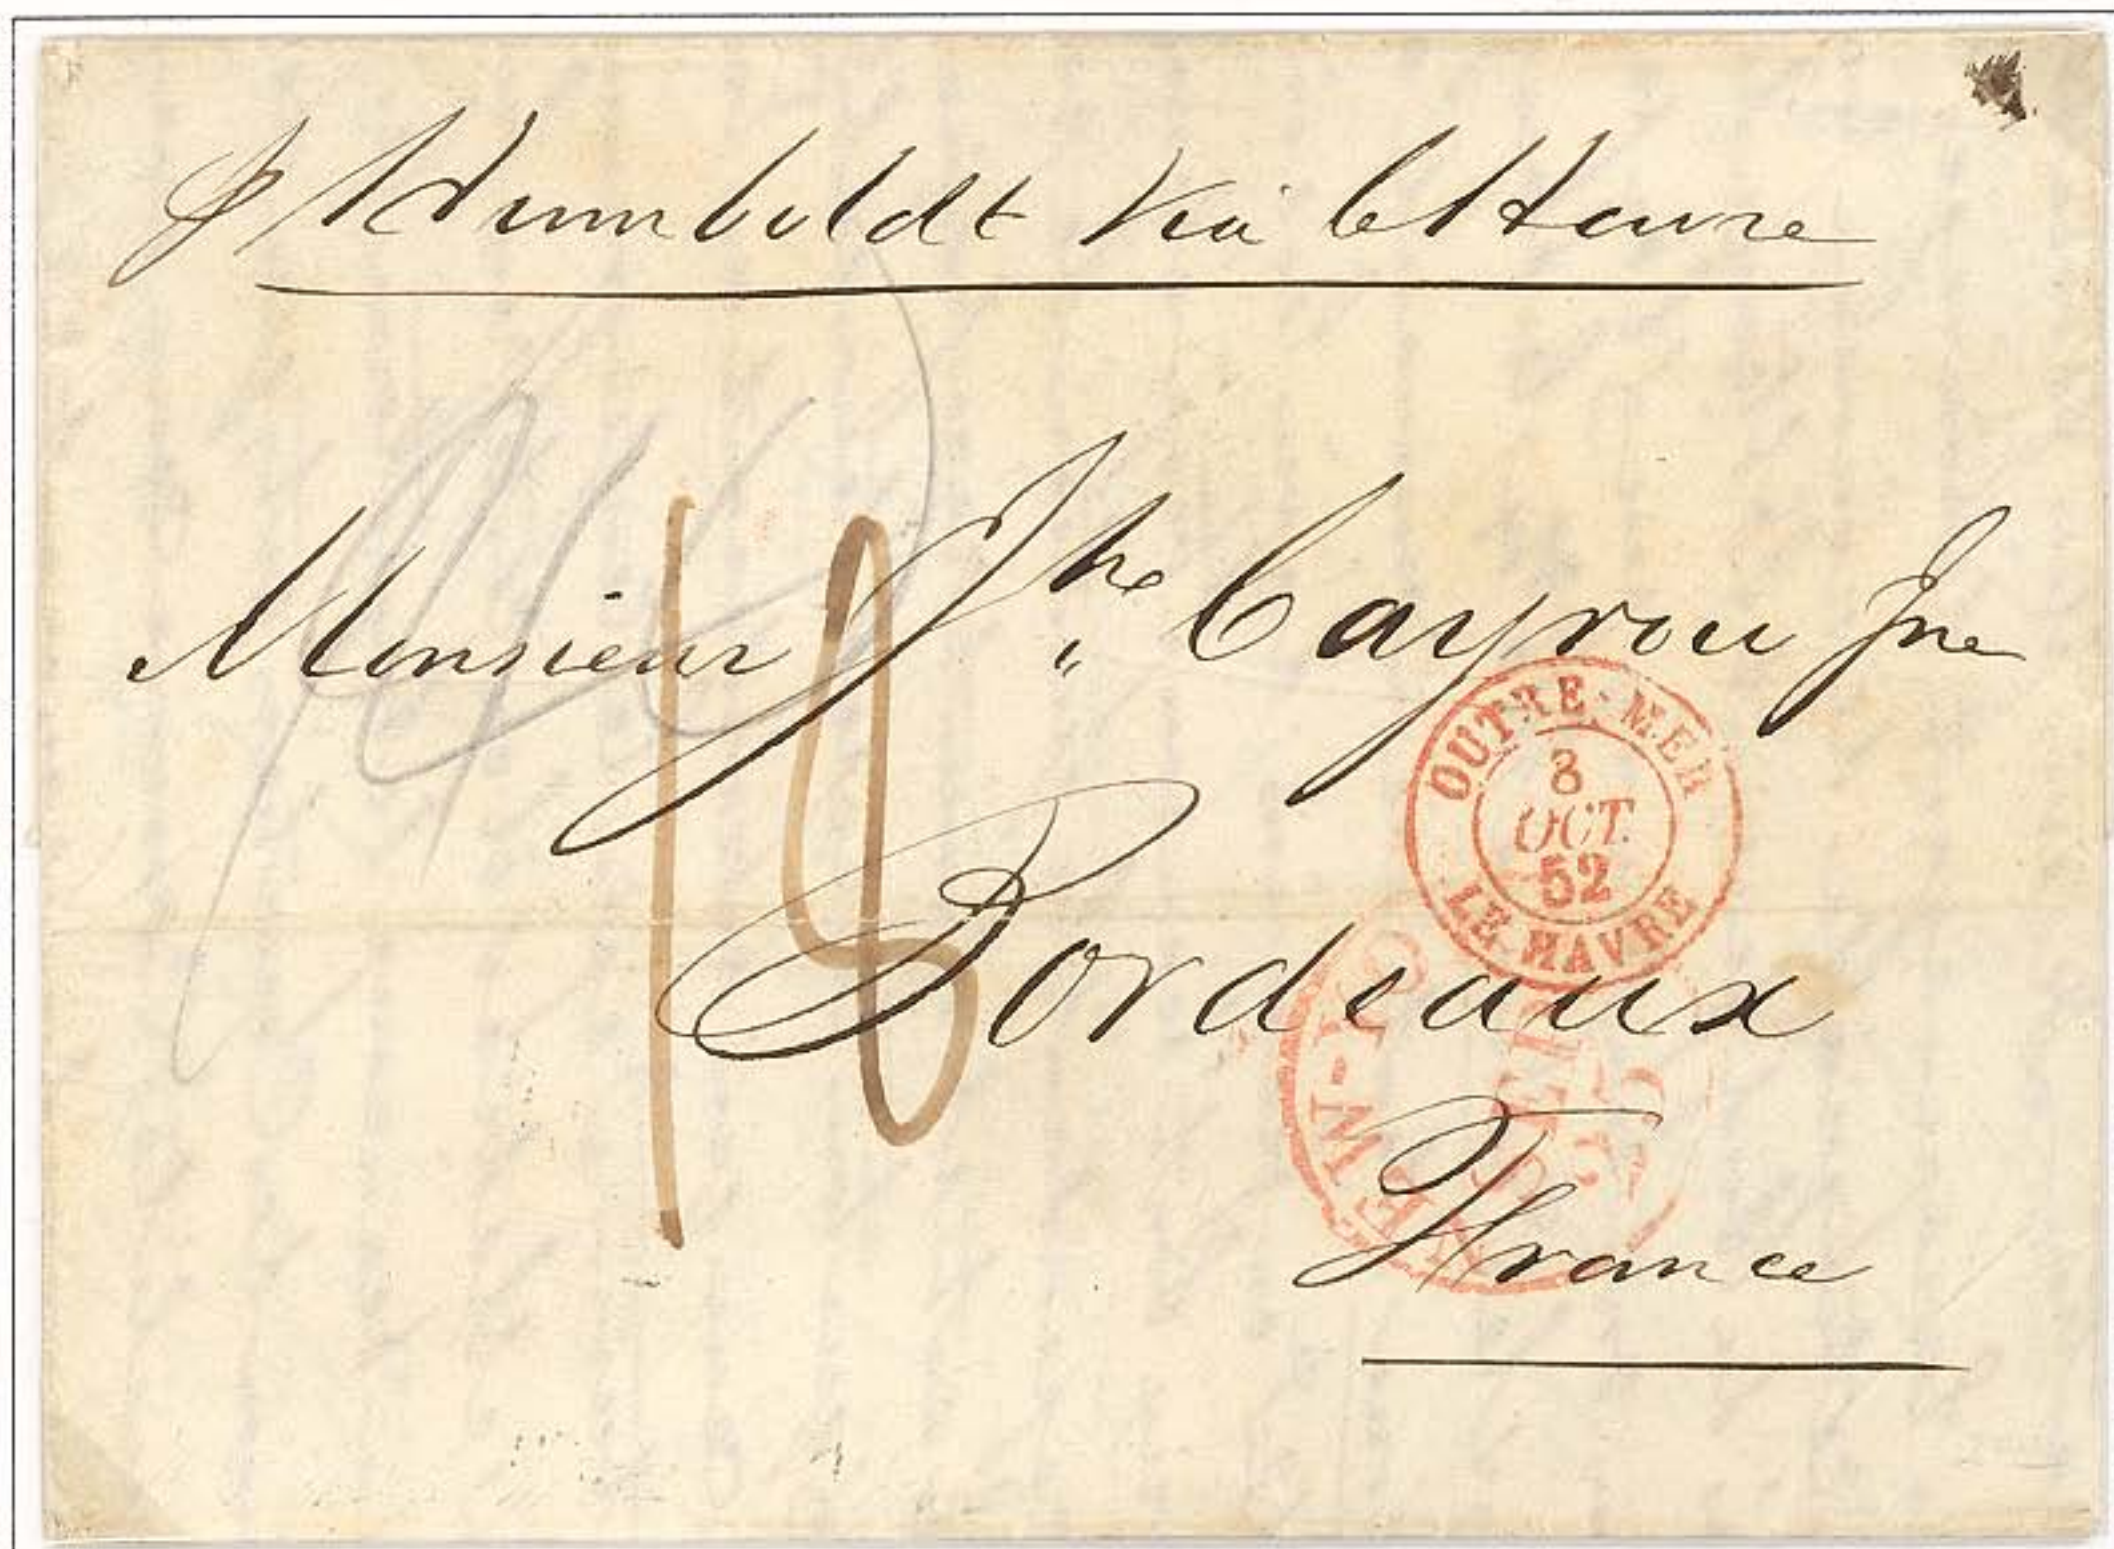 p Humboldt via le Havre
Monsieur Jhe Cayrou Jne
18
Bordeaux
France
OUTRE-MER
8
OCT.
52
LE HAVRE
NEW-YO